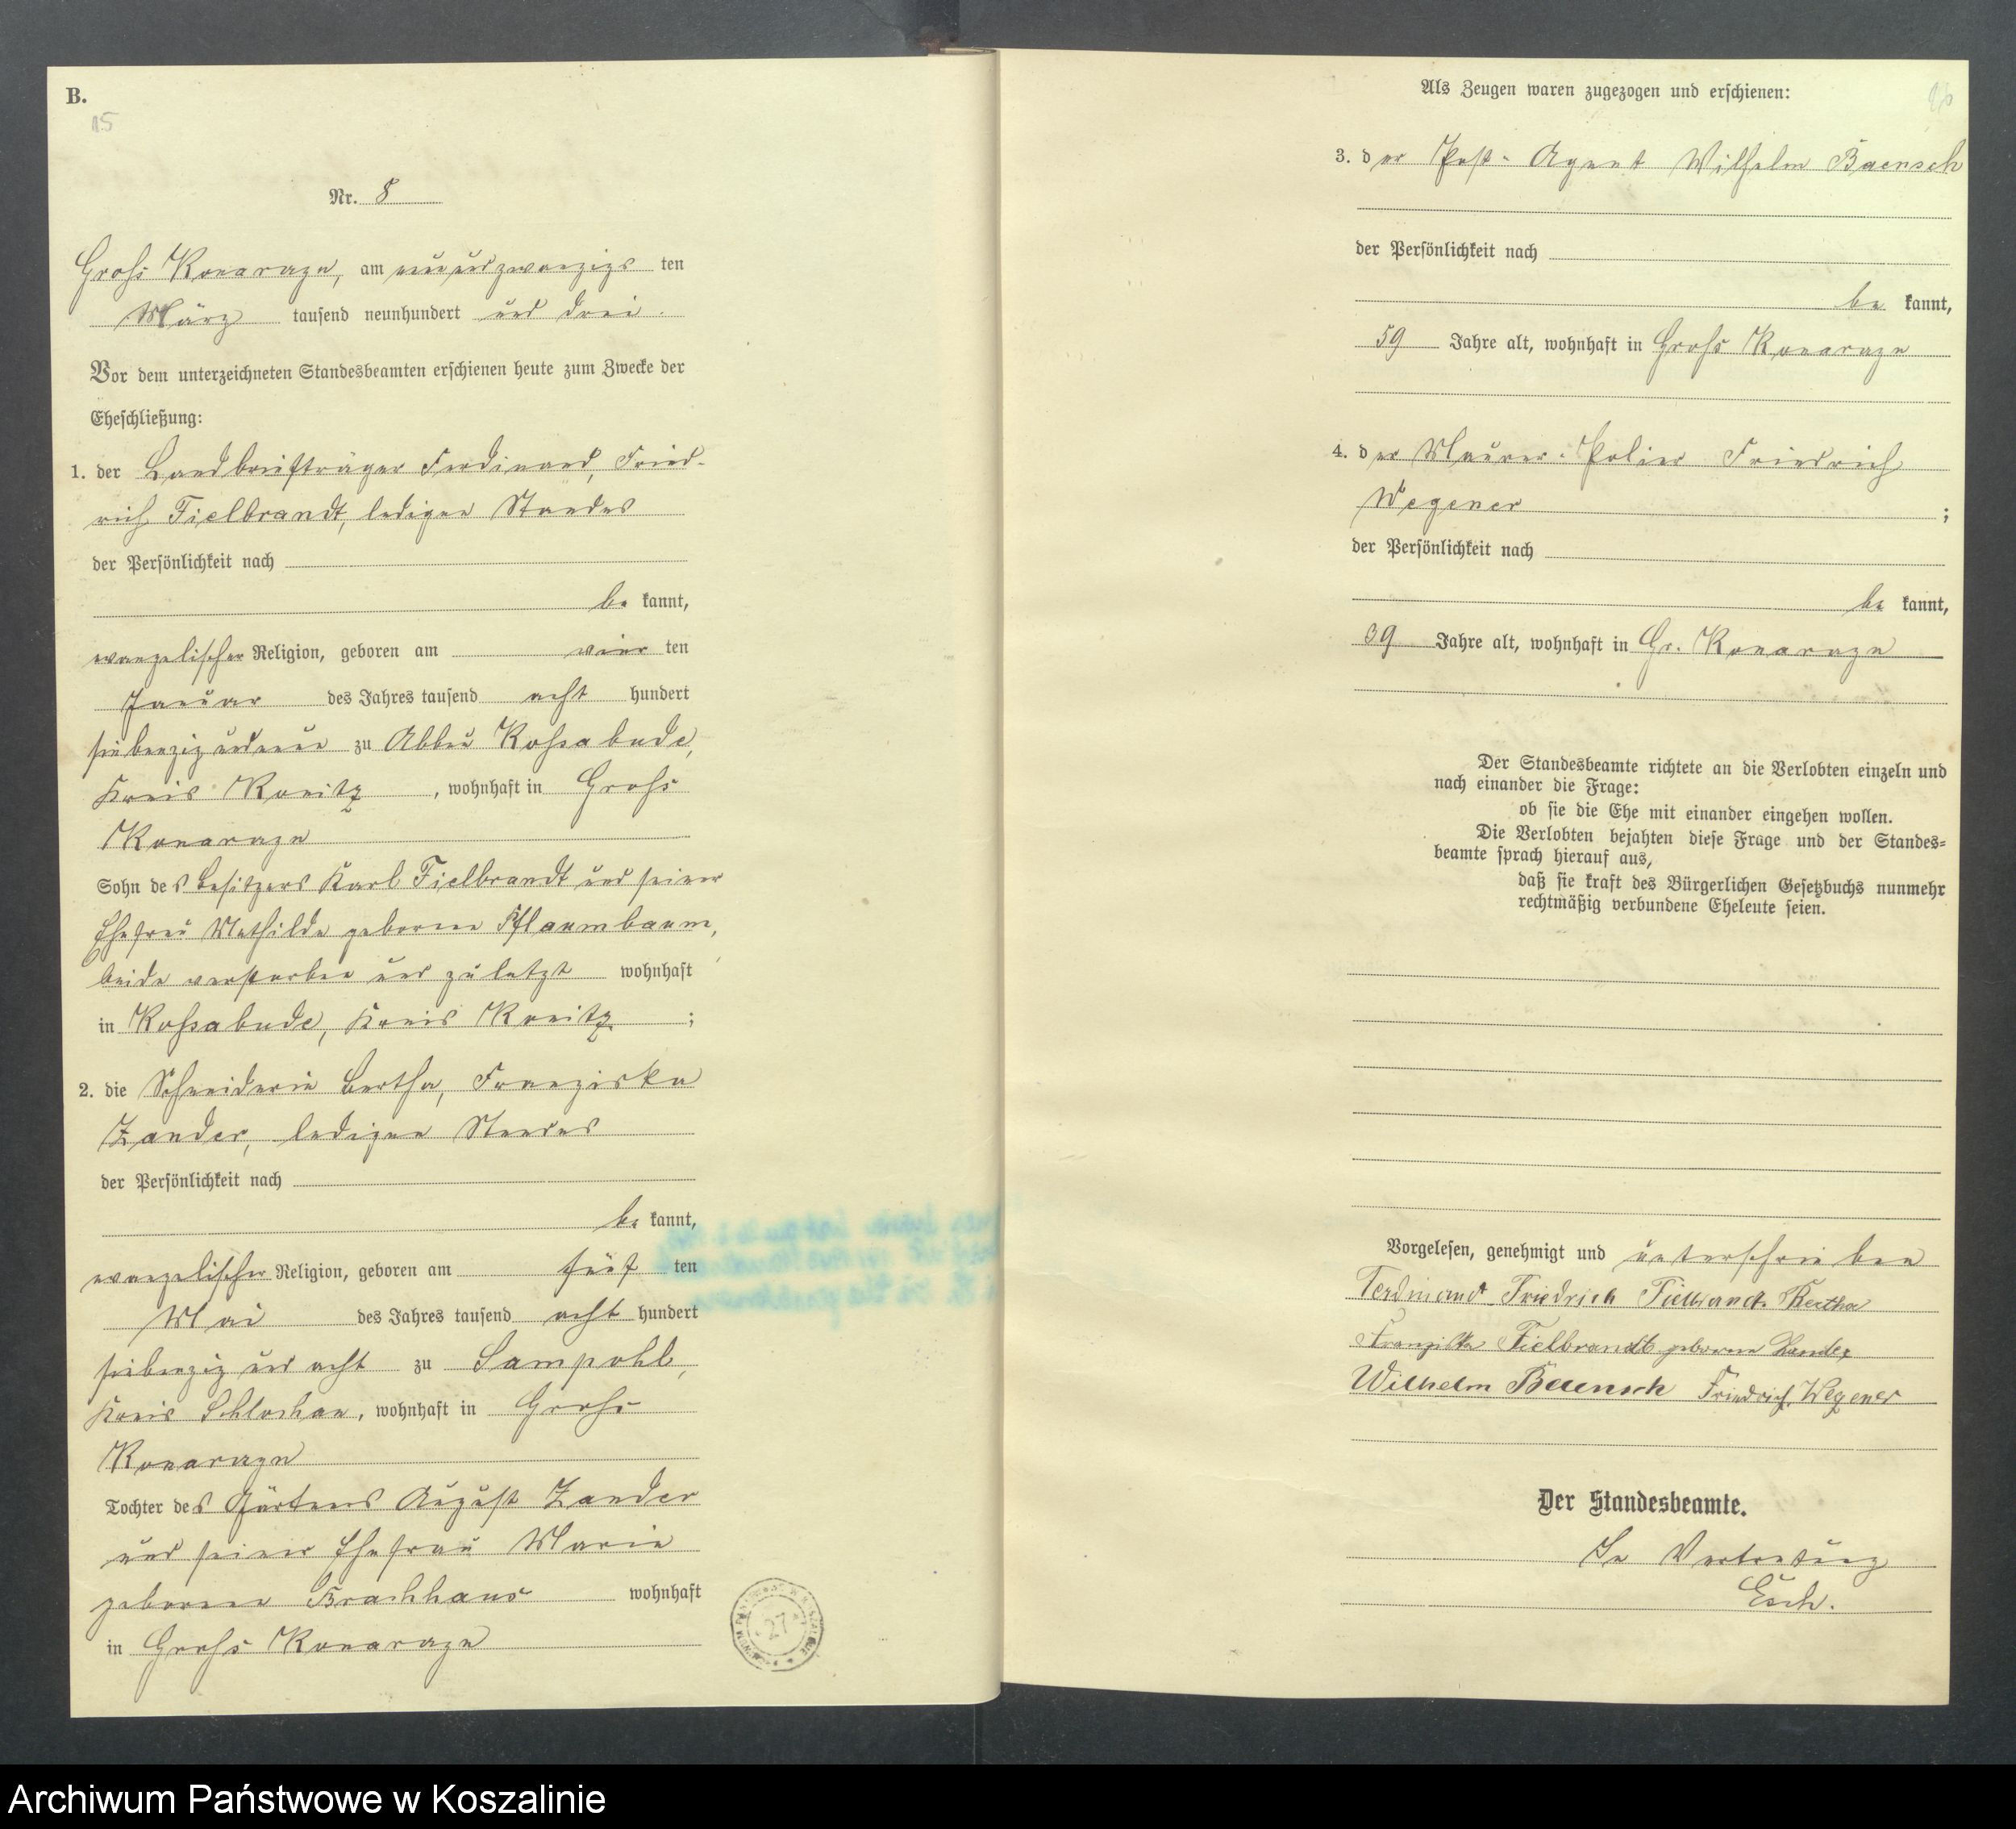 B.
15
Nr. 8
Groß Konarzyn, am neunundzwanzigs ten
März tausend neunhundert und drei.
Vor dem unterzeichneten Standesbeamten erschienen heute zum Zwecke der
Eheschließung:
1. der Landbriefträger Ferdinand, Fried-
rich Fielbrandt, ledigen Standes
der Persönlichkeit nach
be kannt,
evangelischer Religion, geboren am vier ten
Januar des Jahres tausend acht hundert
siebenzig und neun zu Abbau Kossabude,
Kreis Konitz, wohnhaft in Groß
Konarzyn
Sohn des Besitzers Karl Fielbrandt und seiner
Ehefrau Mathilde geborene Pflaumbaum,
beide verstorben und zuletzt wohnhaft
in Kossabude, Kreis Konitz;
2. die Schneiderin Bertha, Franziska
Zander, ledigen Standes
der Persönlichkeit nach
be kannt,
evangelischer Religion, geboren am fünf ten
Mai des Jahres tausend acht hundert
siebenzig und acht zu Sampohl,
Kreis Schlochau, wohnhaft in Groß
Konarzyn
Tochter des Gärtners August Zander
und seiner Ehefrau Marie
geborene Brachhaus wohnhaft
in Groß Konarzyn
27
Als Zeugen waren zugezogen und erschienen:
3. der Post-Agent Wilhelm Baensch
der Persönlichkeit nach
be kannt,
59 Jahre alt, wohnhaft in Groß Konarzyn
4. der Maurer-Polier Friedrich
Wegener;
der Persönlichkeit nach
be kannt,
39 Jahre alt, wohnhaft in Gr. Konarzyn
Der Standesbeamte richtete an die Verlobten einzeln und
nach einander die Frage:
ob sie die Ehe mit einander eingehen wollen.
Die Verlobten bejahten diese Frage und der Standes=
beamte sprach hierauf aus,
daß sie kraft des Bürgerlichen Gesetzbuchs nunmehr
rechtmäßig verbundene Eheleute seien.
Vorgelesen, genehmigt und unterschrieben
Ferdinand Friedrich Fielbrandt. Bertha
Franziska Fielbrandt geborene Zander
Wilhelm Baensch Friedrich Wegener
Der Standesbeamte.
In Vertretung
Esch.
Archiwum Państwowe w Koszalinie